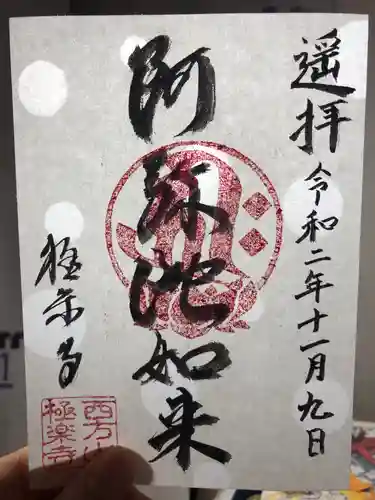 遥拝 令和二年十一月九日
阿弥陀如来
極楽寺
西方山
極楽寺